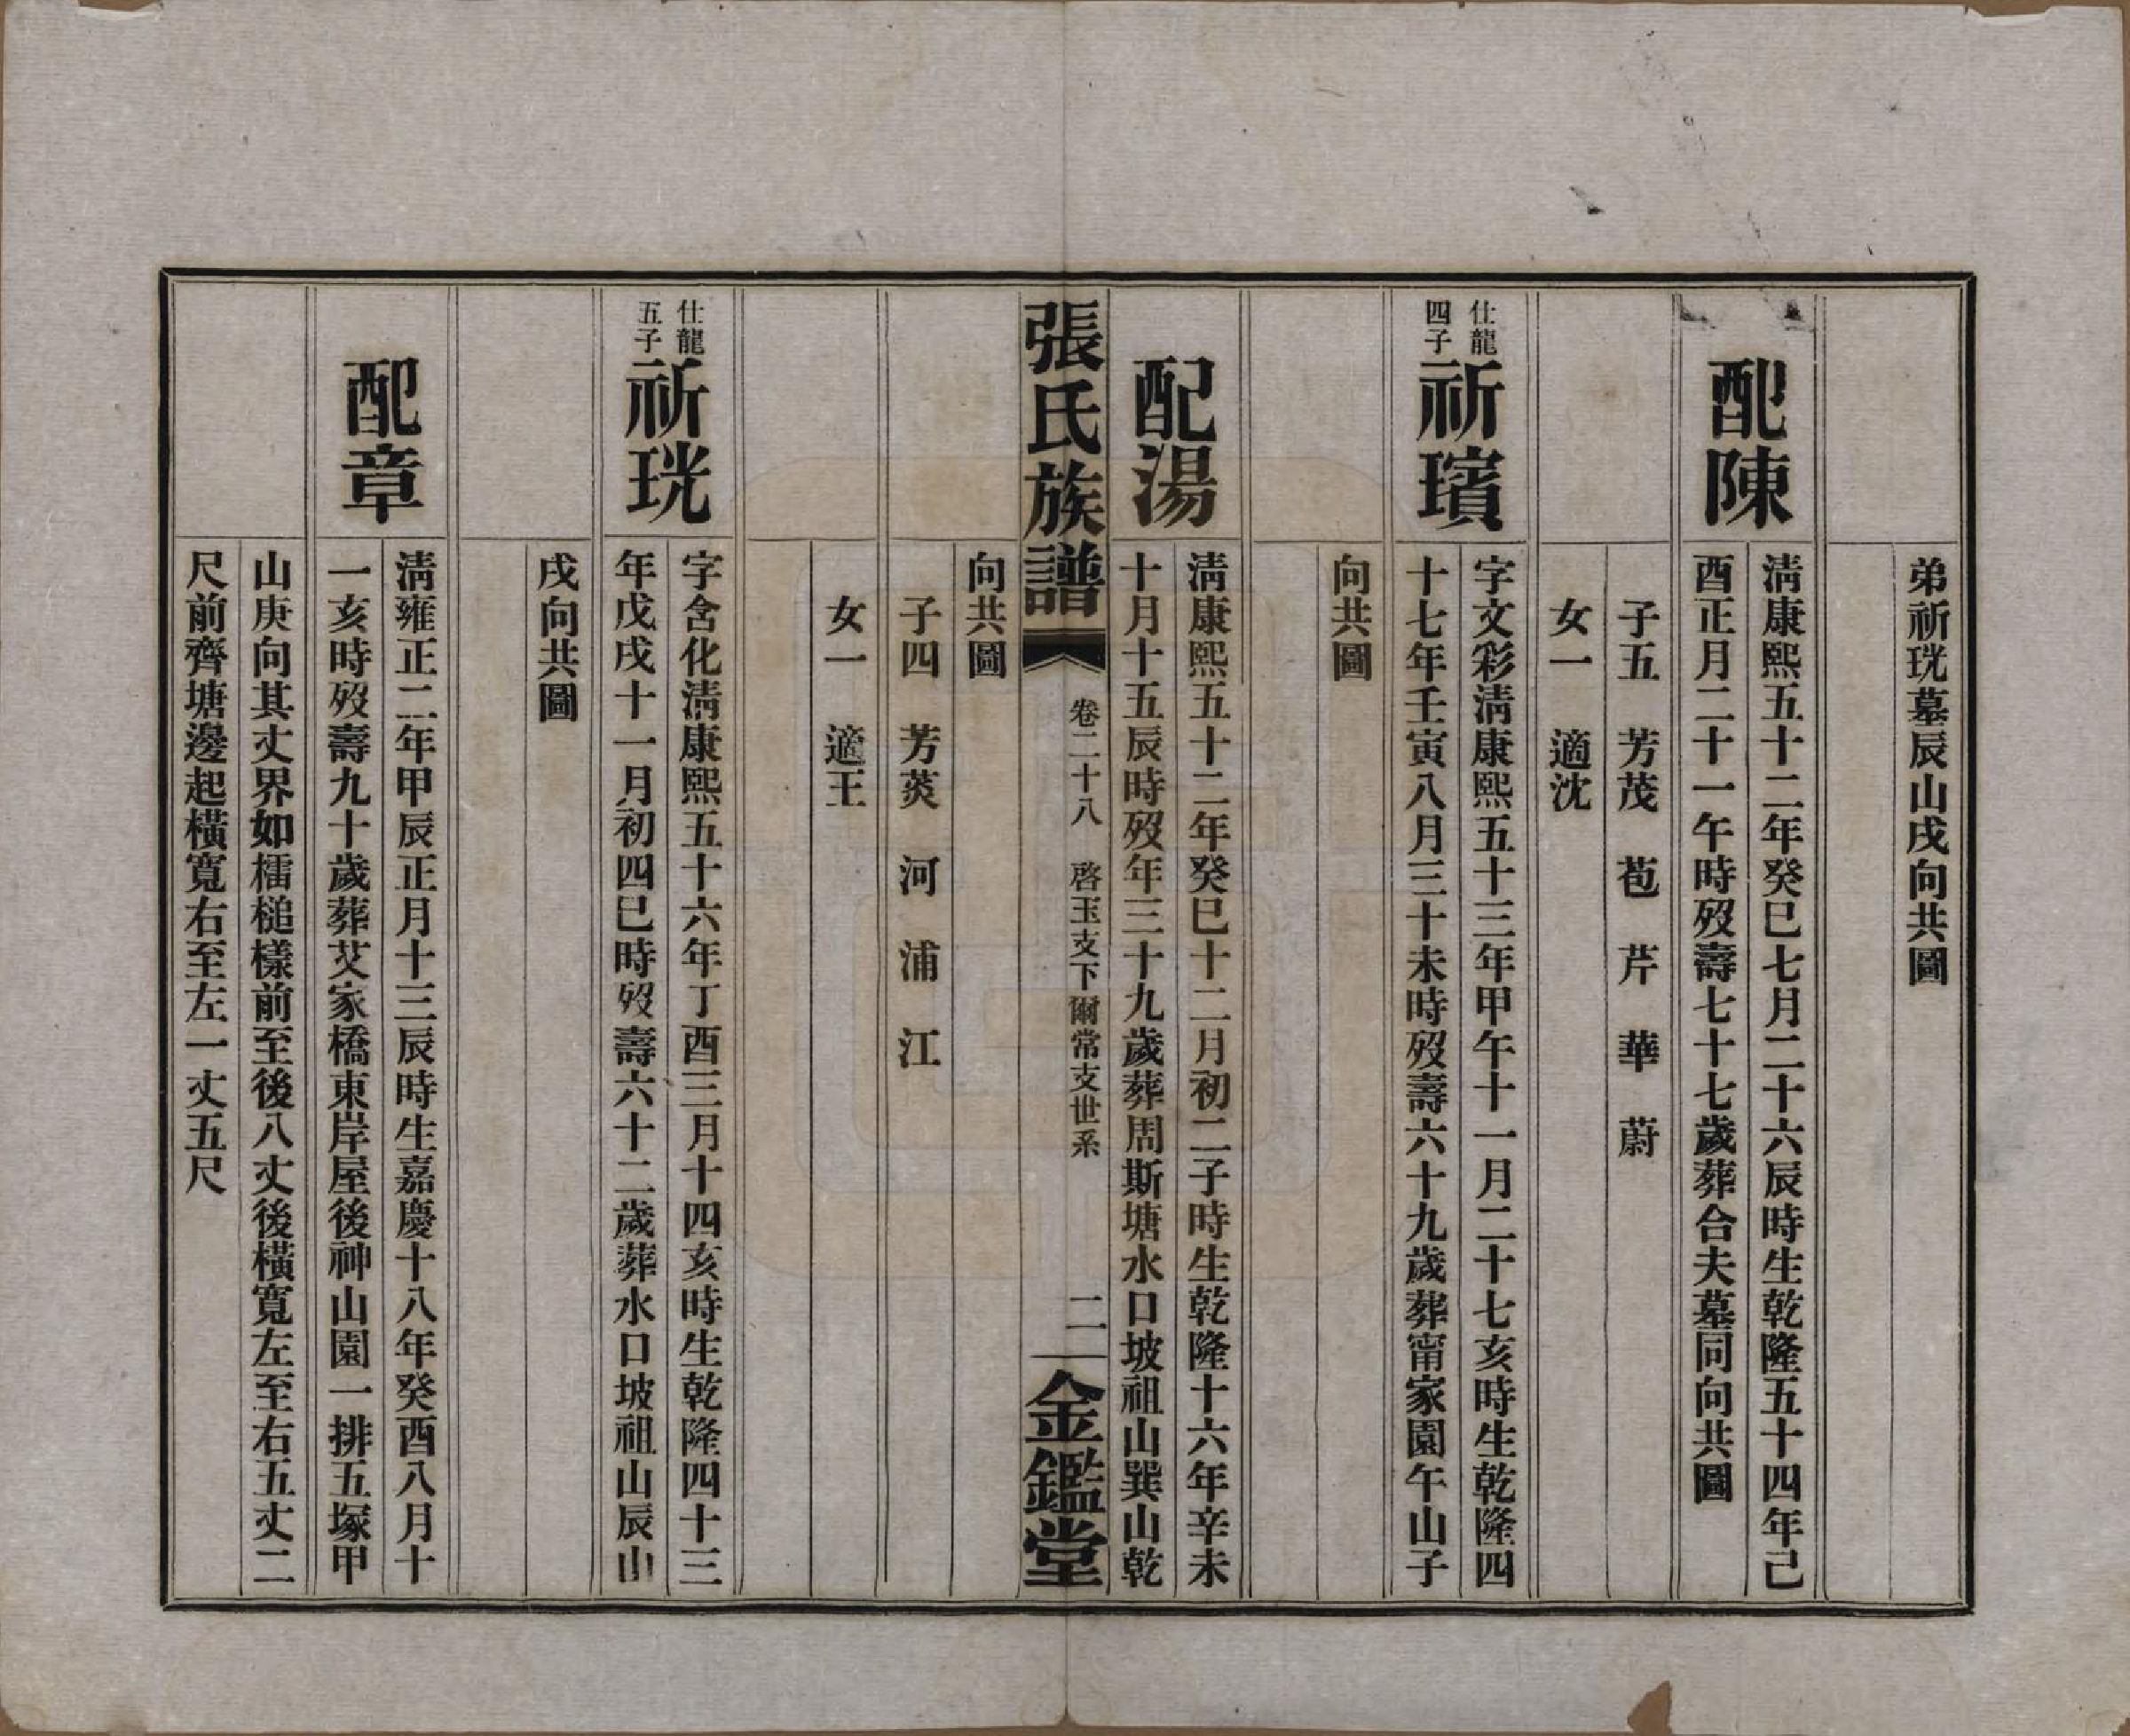 弟祈珖墓辰山戌向共圖
配陳
清康熙五十二年癸巳七月二十六辰時生乾隆五十四年己
酉正月二十一午時歿壽七十七歲葬合夫墓同向共圖
子五　芳茂　苞　芹　華　蔚
女一　適沈
仕龍
四子
祈璸
字文彩清康熙五十三年甲午十一月二十七亥時生乾隆四
十七年壬寅八月三十未時歿壽六十九歲葬甯家園午山子
向共圖
配湯
清康熙五十二年癸巳十二月初二子時生乾隆十六年辛未
十月十五辰時歿年三十九歲葬周斯塘水口坡祖山巽山乾
張氏族譜
卷二十八　啓玉支下爾常支世系
二
金鑑堂
向共圖
子四　芳菼　河　浦　江
女一　適王
仕龍
五子
祈珖
字含化清康熙五十六年丁酉三月十四亥時生乾隆四十三
年戊戌十一月初四巳時歿壽六十二歲葬水口坡祖山辰山
戌向共圖
配章
清雍正二年甲辰正月十三辰時生嘉慶十八年癸酉八月十
一亥時歿壽九十歲葬艾家橋東岸屋後神山園一排五塚甲
山庚向其丈界如檑槌樣前至後八丈後橫寬左至右五丈二
尺前齊塘邊起橫寬右至左一丈五尺